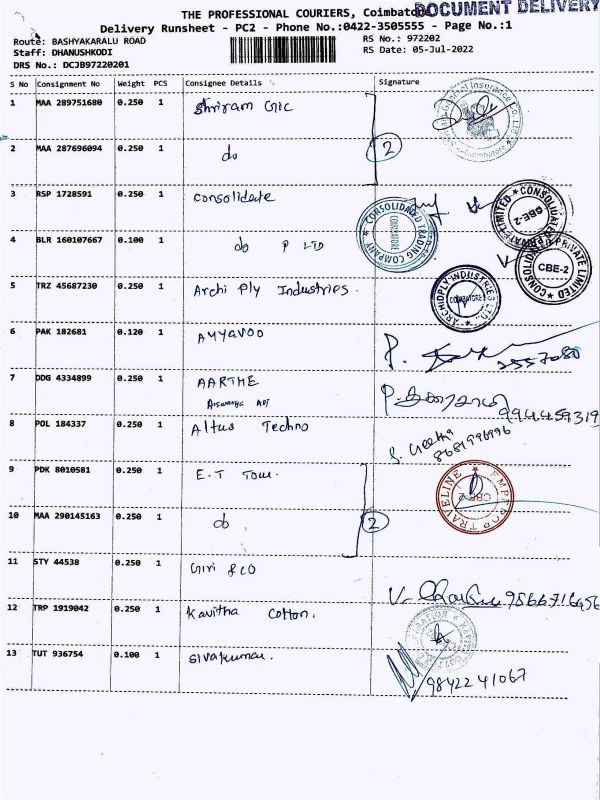 THE PROFESSIONAL COURIERS, Coimbato
DOCUMENT DELIVERY
Delivery Runsheet - PC2 - Phone No.:0422-3505555 - Page No.:1
Route: BASHYAKARALU ROAD
RS No.: 972202
Staff: DHANUSHKODI
RS Date: 05-Jul-2022
DRS No.: DCJB97220201
S No Consignment No Weight PCS Consignee Details Signature
1 MAA 289751680 0.250 1 Shriram GIC
2 MAA 287696094 0.250 1 do 2
3 RSP 1728591 0.250 1 Consolidate
CONSOLIDATED TRADING COMPANY
COIMBATORE
CBE-2
4 BLR 160107667 0.100 1 do P LTD
CONSOLIDATED PRIVATE LIMITED
CBE-2
5 TRZ 45687230 0.250 1 Archi Ply Industries.
ARCHIDPLY INDUSTRIES LTD.
COIMBATORE
6 PAK 182681 0.120 1 Ayyavoo
7 DDG 4334899 0.250 1 AARTHE
8 POL 184337 0.250 1 Altus Techno
S. Geetha
9 PDK 8010581 0.250 1 E.T Tour.
EMPEROR TRAVELINE
CBE-2
10 MAA 290145163 0.250 1 do 2
11 STY 44538 0.250 1 Giri & CO
9566716456
12 TRP 1919042 0.250 1 Kavitha Cotton.
13 TUT 936754 0.100 1 Sivakumar.
9842241067